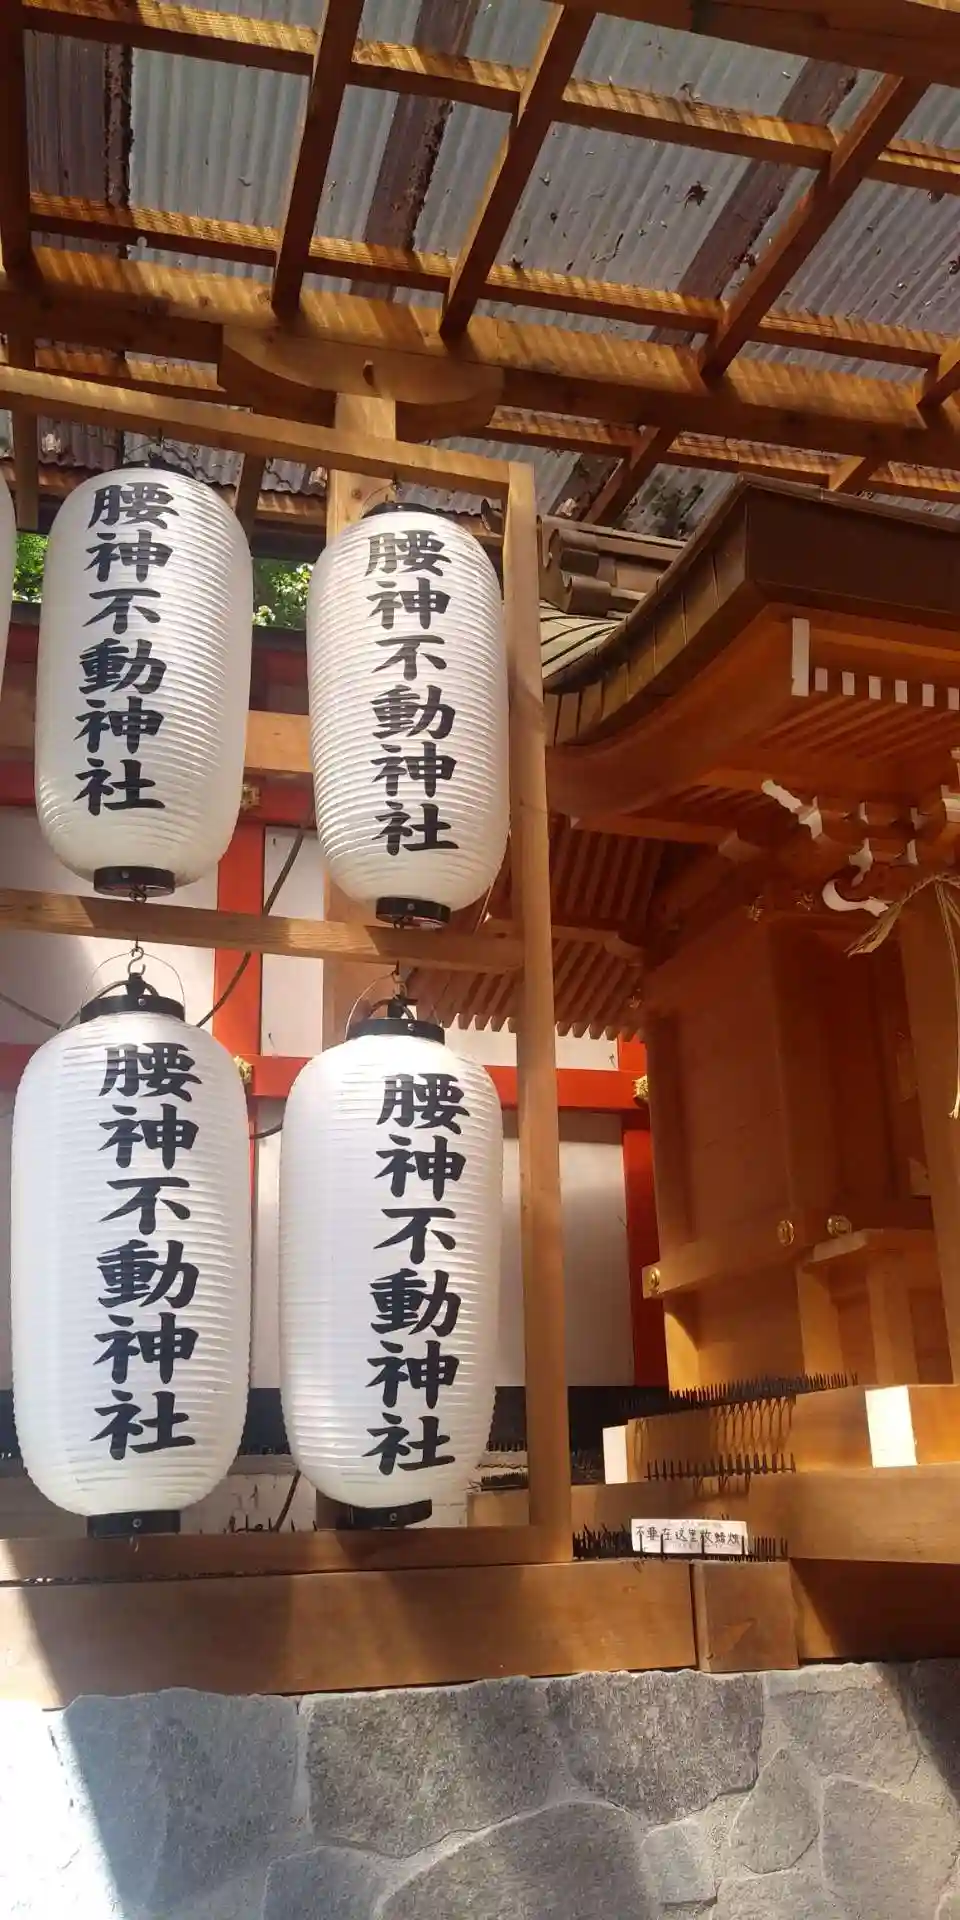 腰神不動神社
腰神不動神社
腰神不動神社
腰神不動神社
不要在这里放蜡烛